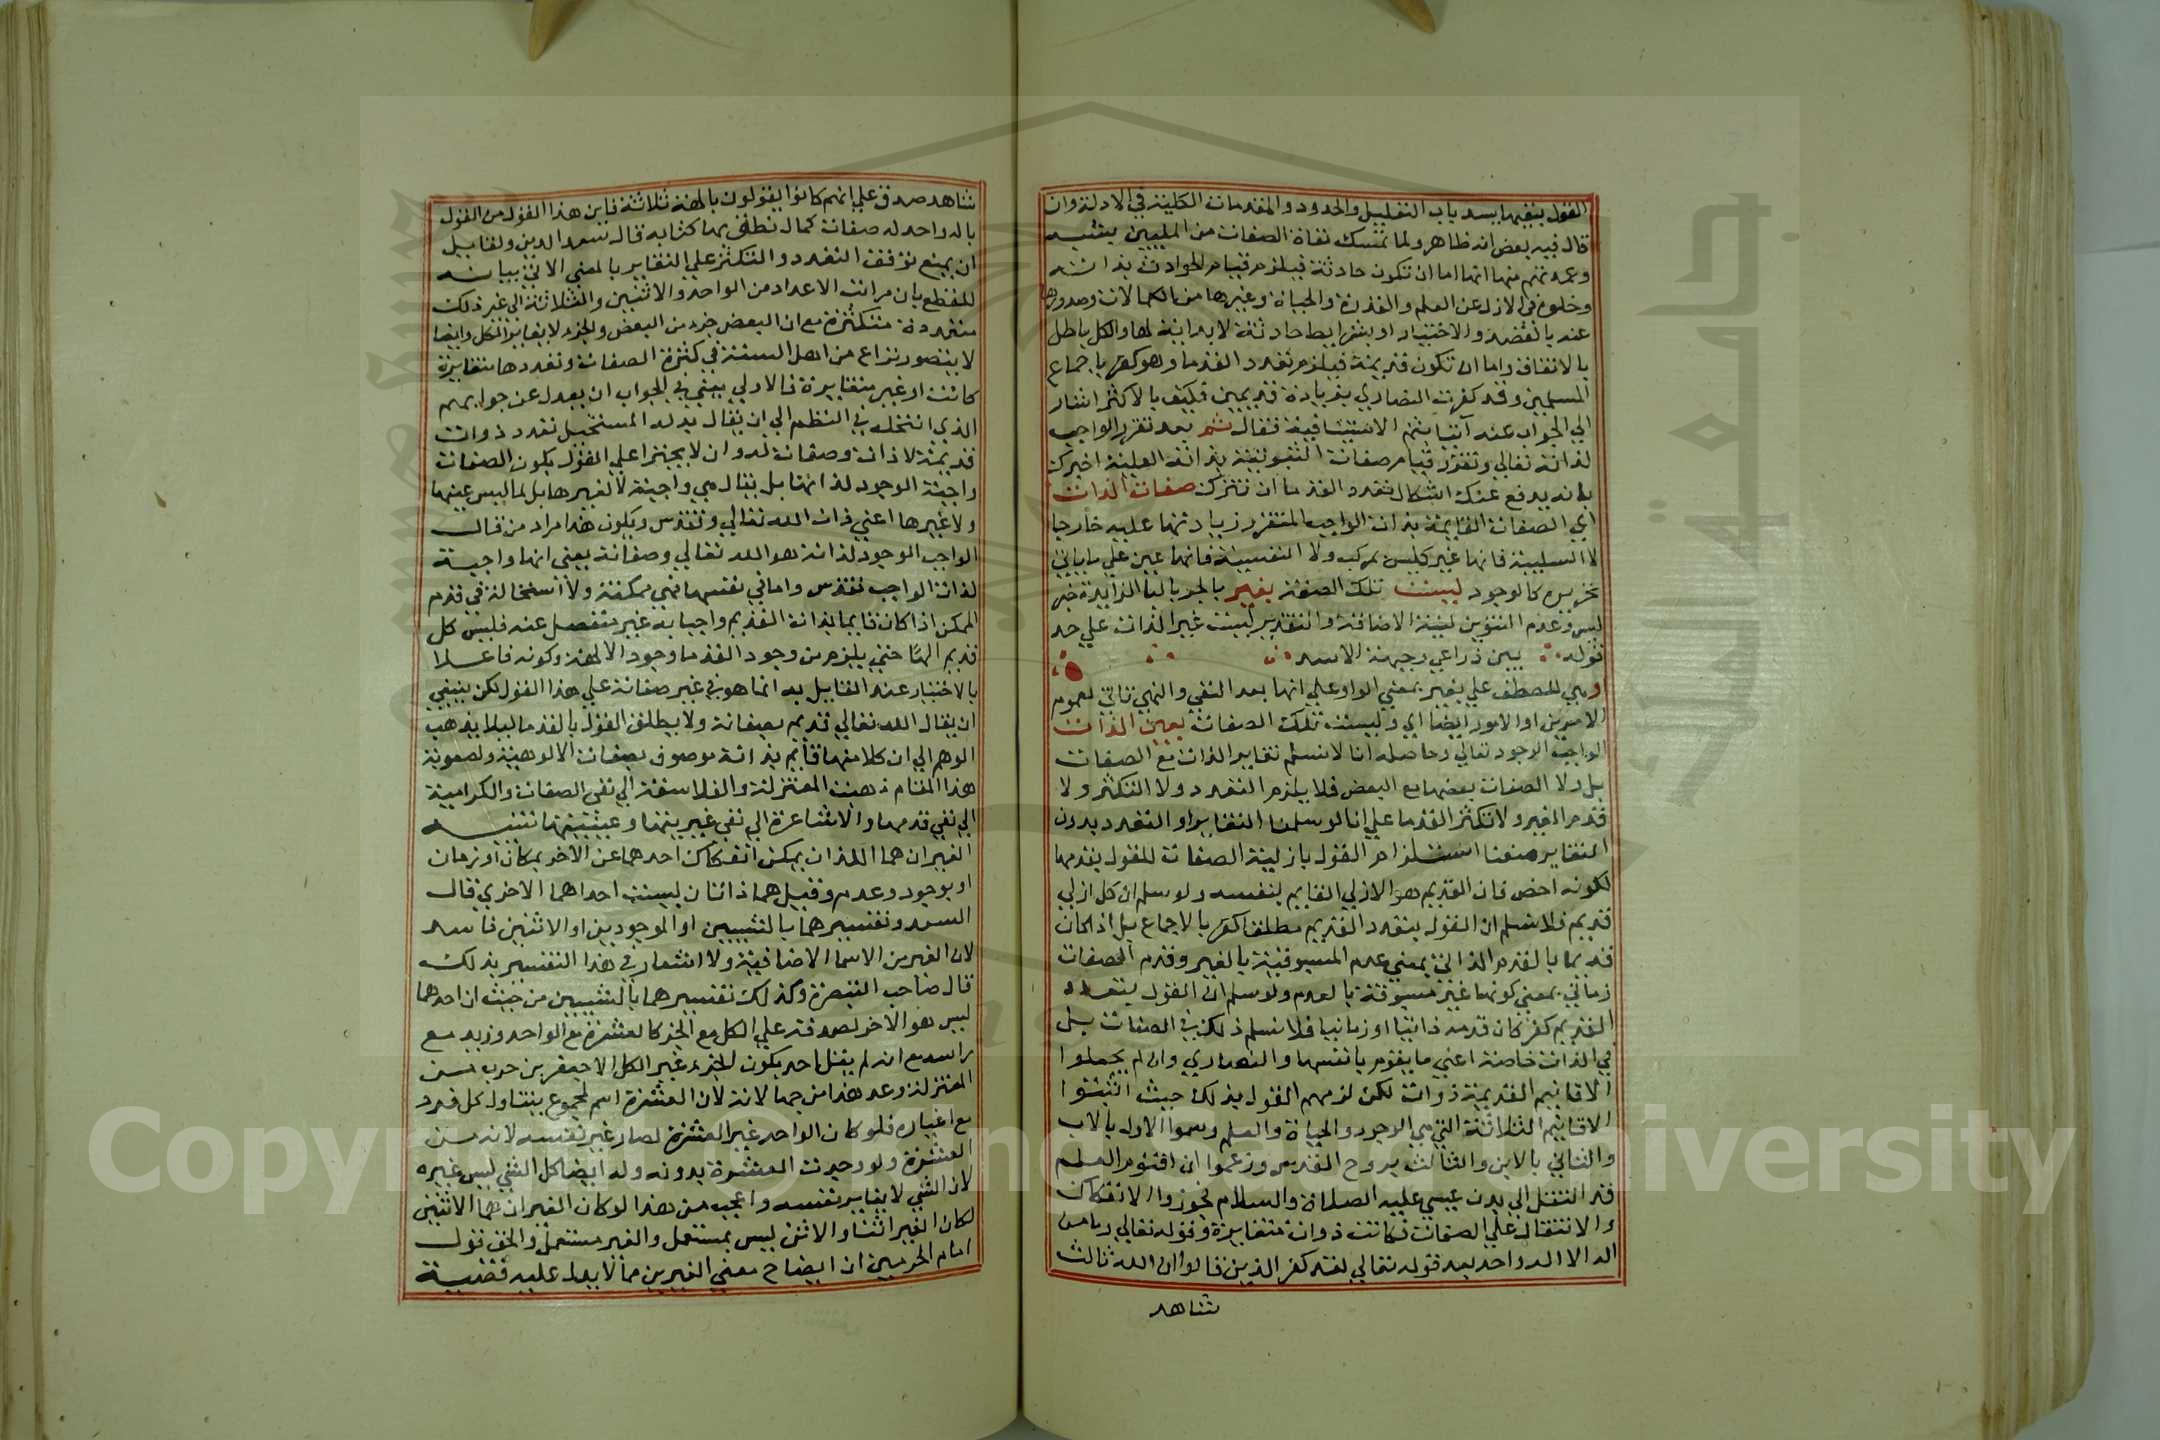 القول بنفيها يسد باب التعليل والحدود والمقدمات الكلية في الادلة وان
قال فيه بعض انه ظاهر ولما تمسك نفاة الصفات من المليين بشبه
وعمدتهم منها انها اما ان تكون حادثة فيلزم قيام الحوادث بذاته
وخلوه في الازل عن العلم والقدرة والحياة وغيرها من الكمالات وصدورها
عنه بالقصد والاختيار او بشرايط حادثة لا بداية لها والكل باطل
بالاتفاق واما ان تكون قديمة فيلزم تعدد القدما وهو كفر باجماع
المسلمين وقد كفرت النصاري بزيادة قديمين فكيف بالاكثر اشار
الي الجواب عنه آتيا بثم الاستينافية فقال ثم بعد تقرر الواجب
لذاته تعالي وتقرر قيام صفات الثبوتية بذاته العلية اخبرك
بانه يدفع عنك اشكال تعدد القدما ان تترك صفات الذات
اي الصفات القايمة بذات الواجب المتقرر زيادتها عليه خارجا
لا السلبية فانها غير كليس بمركب ولا النفسية فانها عين علي ما ياتي
تحريره كالوجود ليست تلك الصفة بغير بالجر بالبا الزايدة خبر
ليس وعدم التنوين لنية الاضافة والتقدير ليست غير الذات علي حد
قوله بين ذراعي وجبهة الاسد
او هي للعطف علي بغير بمعني الواو علي انها بعد النفي والنهي تاتي لعموم
الامرين او الامور ايضا اي وليست تلك الصفات بعين الذات
الواجب الوجود تعالي وحاصله انا لا نسلم تغاير الذات مع الصفات
بل ولا الصفات بعضها مع البعض فلا يلزم التعدد ولا التكثر ولا
قدم الغير ولا تكثر القدما علي انا لو سلمنا التغاير او التعدد بدون
التغاير منعنا استلزام القول بازلية الصفات للقول بقدمها
لكونه اخص فان القديم هو الازلي القايم بنفسه ولو سلم ان كل ازلي
قديم فلا نسلم ان القول بتعدد القديم مطلقا كفر بالاجماع بل اذا كان
قديما بالقدم الذاتي بمعني عدم المسبوقية بالغير وقدم الصفات
زماني بمعني كونها غير مسبوقة بالعدم ولو سلم ان القول بتعدد
القديم كفر كان قدمه ذاتيا او زمانيا فلا نسلم ذلك في الصفات بل
في الذات خاصة اعني ما يقوم بانفسها والنصاري وان لم يجعلوا
الاقانيم القديمة ذوات لكن لزمهم القول بذلك حيث اثبتوا
الاقانيم الثلاثة التي هي الوجود والحياة والعلم وسموا الاول بالاب
والثاني بالابن والثالث بروح القدس وزعموا ان اقنوم العلم
قد انتقل الي بدن عيسي عليه الصلاة والسلام فجوزوا الانفكاك
والانتقال علي الصفات فكانت ذوات متغايرة وقوله تعالي وما من
اله الا اله واحد بعد قوله تعالي لقد كفر الذين قالوا ان الله ثالث
شاهد
شاهد صدق علي انهم كانوا يقولون بالهة ثلاثة فاين هذا القول من القول
باله واحد له صفات كمال نطق بها كتابه قال سعد الدين ولقايل
ان يمنع توقف التعدد والتكثر علي التغاير بالمعني الاتي بيانه
للقطع بان مراتب الاعداد من الواحد والاثنين والثلاثة الي غير ذلك
متعددة متكثرة مع ان البعض جزء من البعض والجزء لا يغاير الكل وايضا
لا يتصور نزاع من اهل السنة في كثرة الصفات وتعددها متغايرة
كانت او غير متغايرة فالاولي يعني في الجواب ان يعدل عن جوابهم
الذي انتحله في النظم الي ان يقال بدله المستحيل تعدد ذوات
قديمة لا ذات وصفات له وان لا يجترا علي القول بكون الصفات
واجبة الوجود لذاتها بل يقال هي واجبة لا لغيرها بل لما ليس عينها
ولا غيرها اعني ذات الله تعالي وتقدس ويكون هذا مراد من قال
الواجب الوجود لذاته هو الله تعالي وصفاته يعني انها واجبة
لذات الواجب تقدس واما في نفسها فهي ممكنة ولا استحالة في قدم
الممكن اذا كان قايما بذات القديم واجبا به غير منفصل عنه فليس كل
قديم الها حتي يلزم من وجود القدما وجود الالهة وكونه فاعلا
بالاختيار عند القايل به انما هو في غير صفاته علي هذا القول لكن ينبغي
ان يقال الله تعالي قديم بصفاته ولا يطلق القول بالقدما ليلا يذهب
الوهم الي ان كلا منها قايم بذاته موصوف بصفات الالوهية ولصعوبة
هذا المقام ذهبت المعتزلة والفلاسفة الي نفي الصفات والكرامية
الي نفي قدمها والاشاعرة الي نفي غيريتها وعينيتها تنبيه
الغيران هما اللذان يمكن انفكاك احدهما عن الاخر بمكان او زمان
او بوجود وعدم وقيل هما ذاتان ليست احداهما الاخري قال
السعد وتفسيرهما بالشيئين او الموجودين او الاثنين فاسد
لان الغير من الاسما الاضافية ولا اشعار في هذا التفسير بذلك
قال صاحب التبصرة وكذلك تفسيرهما بالشيئين من حيث ان احدهما
ليس هو الاخر لصدقه علي الكل مع الجزء كالعشرة مع الواحد وزيد مع
راسه مع انه لم يقل احد بكون الجزء غير الكل الا جعفر بن حرب من
المعتزلة وعد هذا من جهالاته لان العشرة اسم لمجموع يتناول كل فرد
مع اغياره فلو كان الواحد غير العشرة لصار غير نفسه لانه من
العشرة ولو وجدت العشرة بدونه وله ايضا كل الشي ليس غيره
لان الشي لا يغاير نفسه واعجب من هذا لو كان الغيران هما الاثنين
لكان الغير اثنا والاثن ليس بمستعمل والغير مستعمل والحق قول
امام الحرمين ان ايضاح معني الغيرين مما لا يدل عليه قضية
Copyright © King Saud University